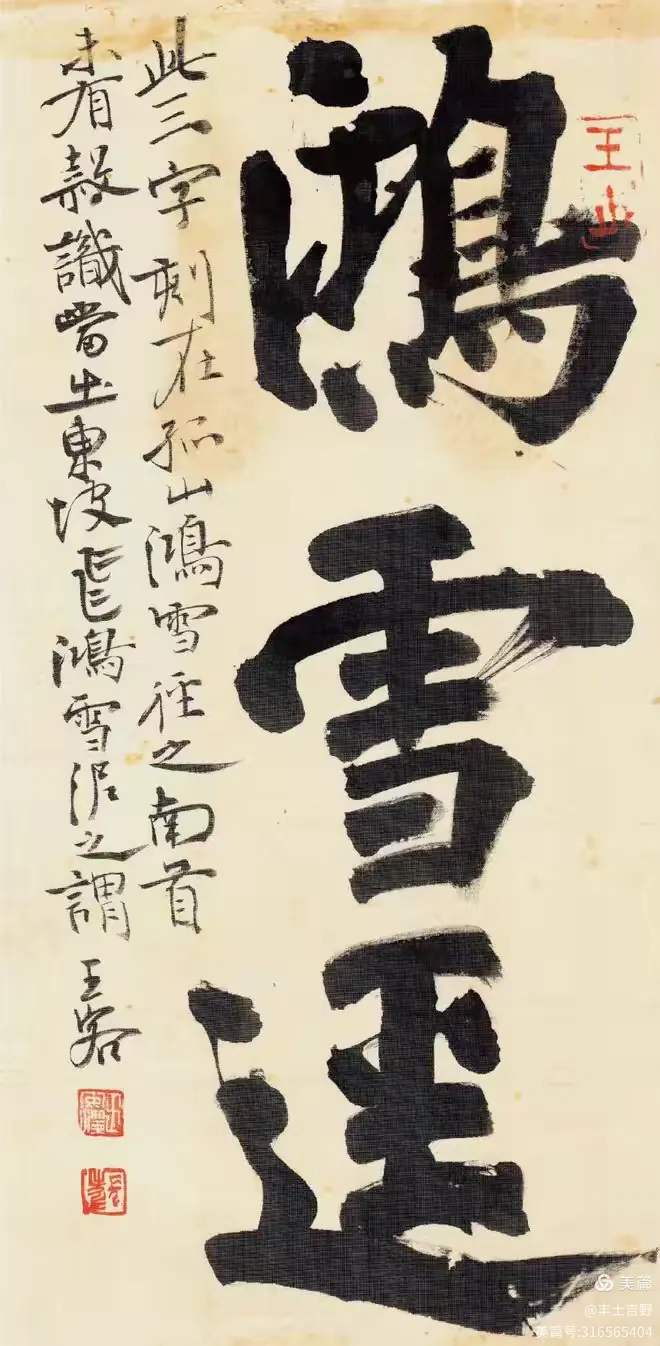 鴻雪逕
此三字刻在孤山鴻雪徑之南首
未着款識當出東坡飛鴻雪泥之謂
王客
美篇
@丰土吉野
美篇号:316565404